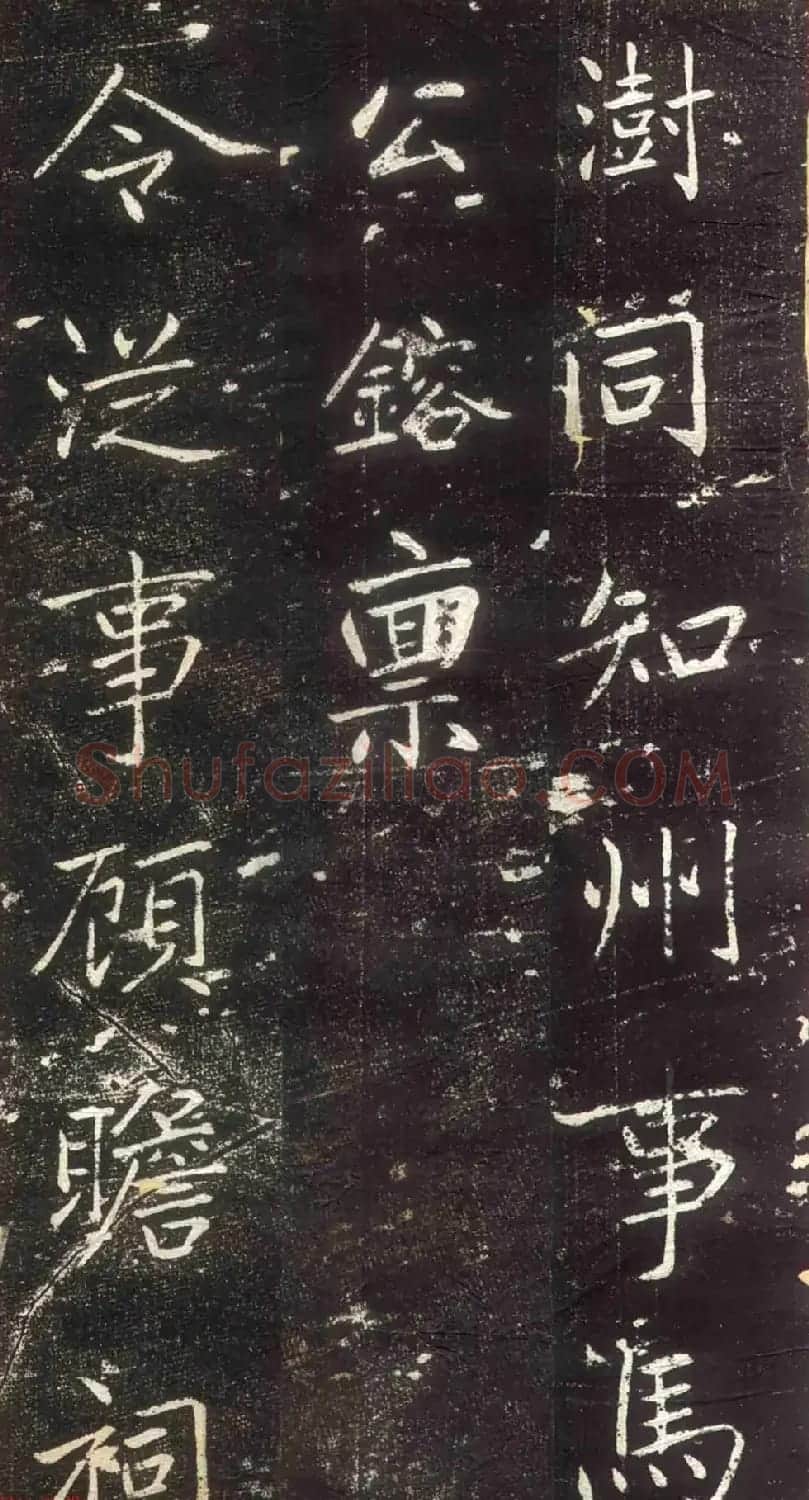 澍同知州事馮
公鎔禀
令從事顧瞻祠
Shufaziliao.COM